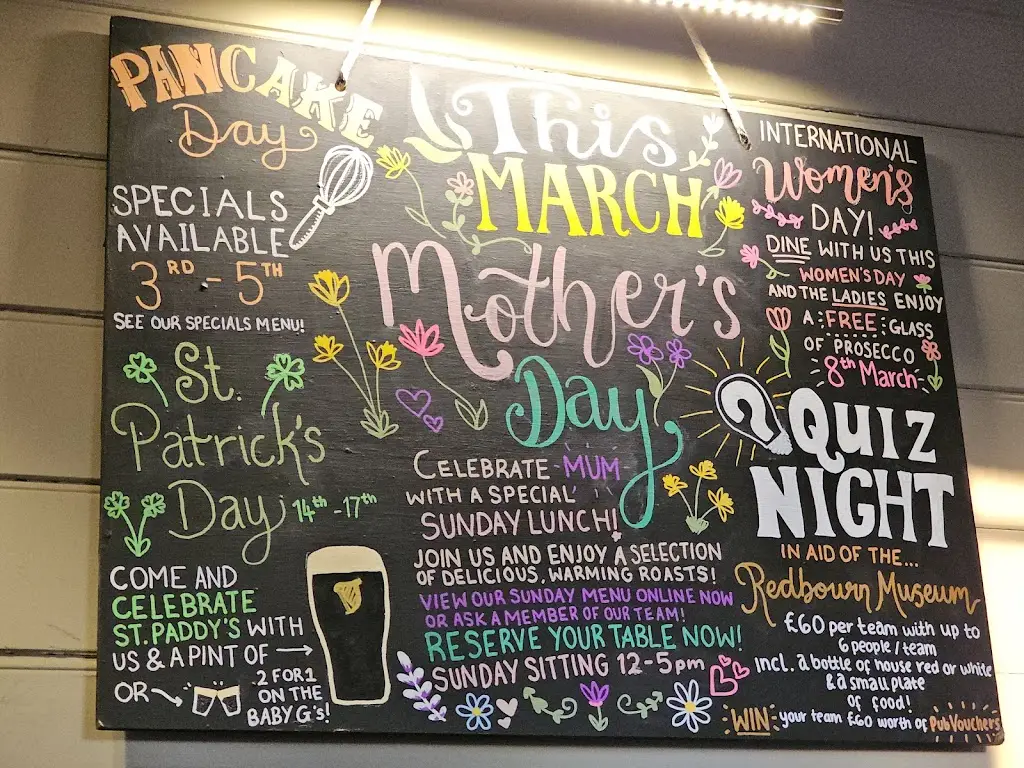 PANCAKE
Day
SPECIALS
AVAILABLE
3RD - 5TH
SEE OUR SPECIALS MENU!
St.
Patrick's
Day 14th - 17th
COME AND
CELEBRATE
ST. PADDY'S WITH
US & A PINT OF
OR
2 FOR 1
ON THE
BABY G's!
This
MARCH
Mother's
Day
CELEBRATE MUM
WITH A SPECIAL
SUNDAY LUNCH!
JOIN US AND ENJOY A SELECTION
OF DELICIOUS, WARMING ROASTS!
VIEW OUR SUNDAY MENU ONLINE NOW
OR ASK A MEMBER OF OUR TEAM!
RESERVE YOUR TABLE NOW!
SUNDAY SITTING 12-5pm
INTERNATIONAL
Women's
DAY!
DINE WITH US THIS
WOMEN'S DAY
AND THE LADIES ENJOY
A FREE GLASS
OF PROSECCO
8th March
QUIZ
NIGHT
IN AID OF THE...
Redbourn Museum
£60 per team with up to
6 people / team
incl. a bottle of house red or white
& a small plate
of food!
WIN your team £60 worth of Pub Vouchers